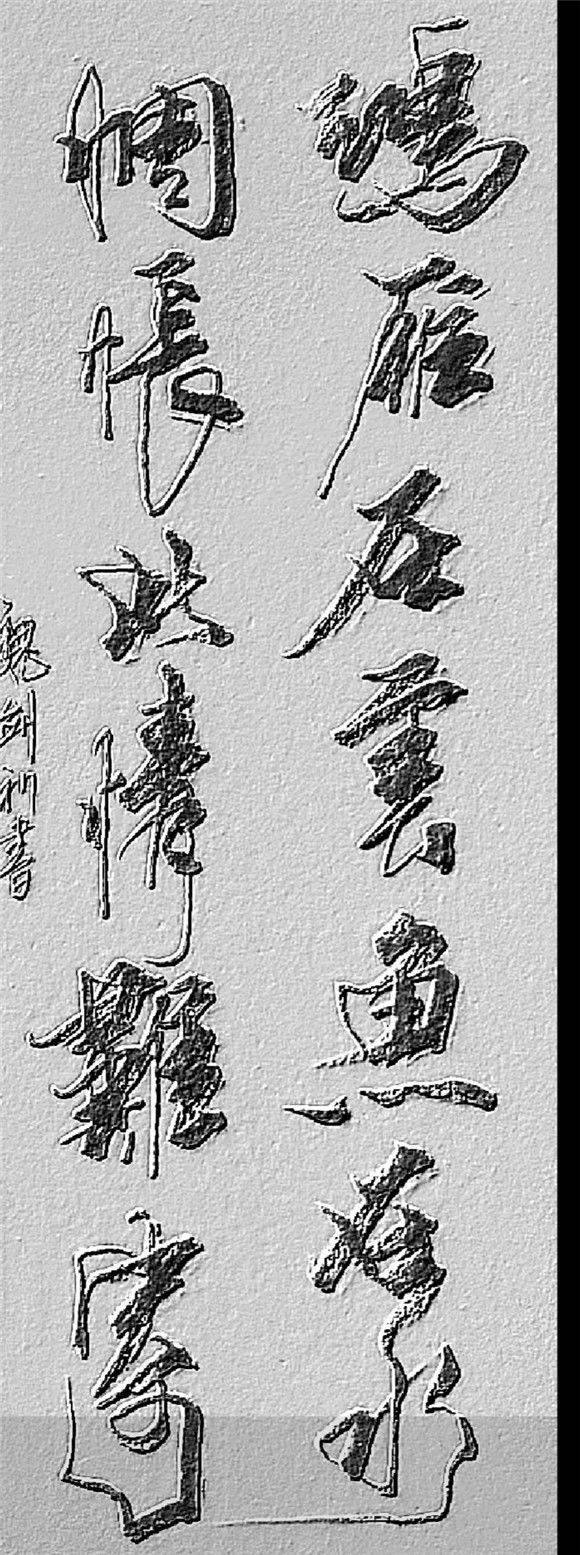 鴻雁在雲魚在水
惆悵此情難寄
魏書